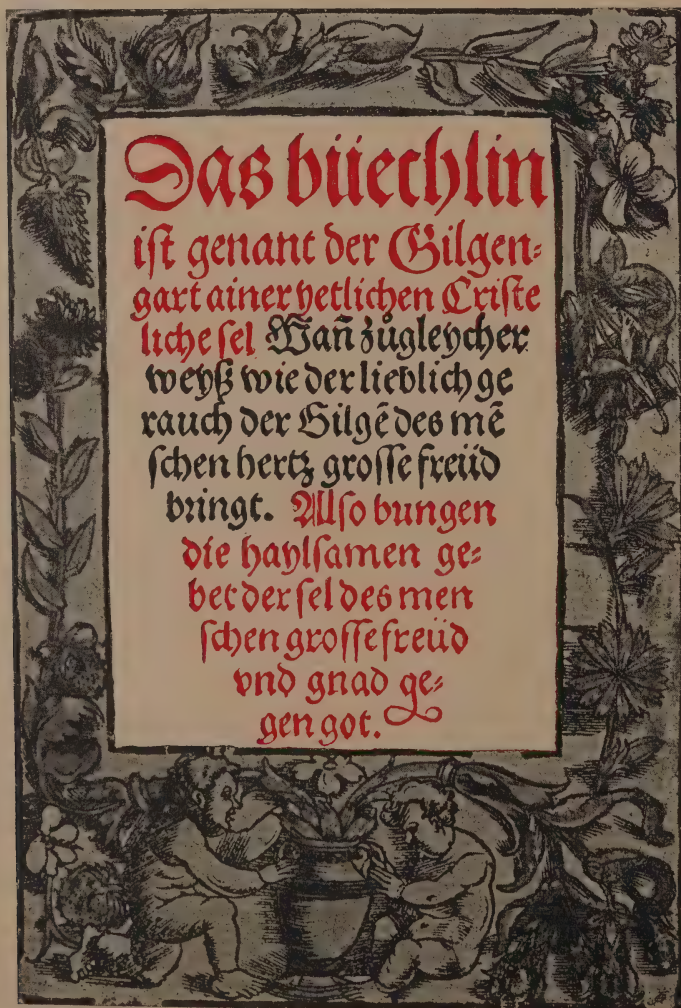 Das büechlin
iſt genant der Gilgen⸗
gart ainer yetlichen Criſte
liche ſel Wañ zůgleycher
weyß wie der lieblich ge
rauch der Gilgẽ des mẽ
ſchen hertz groſſe freüd
bringt. Alſo bungen
die haylſamen ge⸗
bet der ſel des men
ſchen groſſe freüd
vnd gnad ge⸗
gen got.